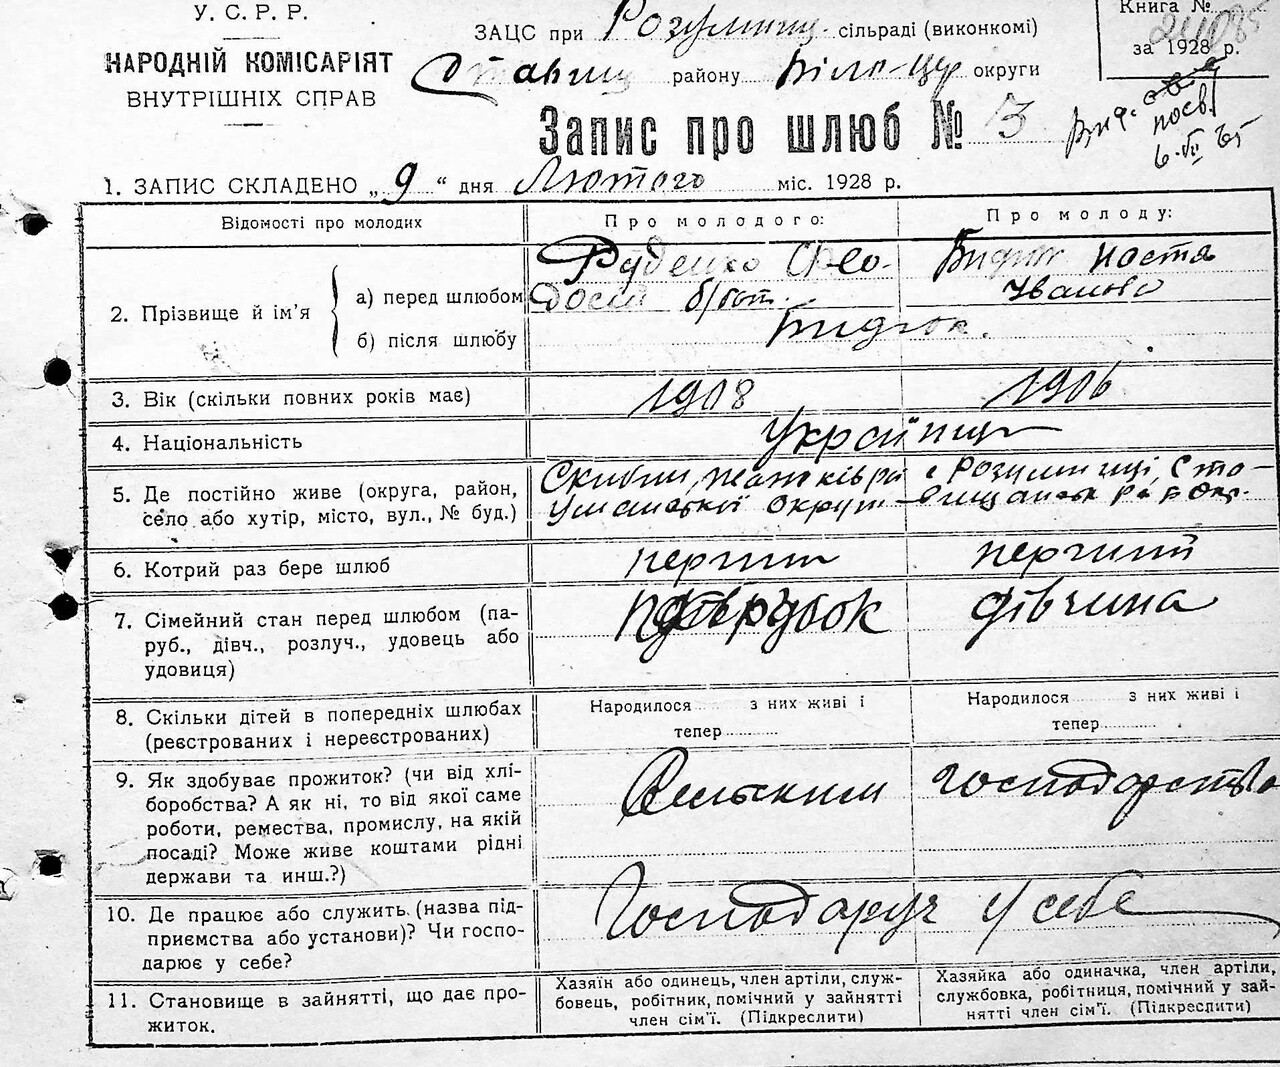 У. С. Р. Р.
НАРОДНІЙ КОМІСАРІЯТ
ВНУТРІШНІХ СПРАВ
ЗАЦС при Розумниц. сільраді (виконкомі)
Ставищ району Біло-Цер округи
Книга №
за 1928 р.
Запис про шлюб № 3
1. ЗАПИС СКЛАДЕНО „ 9 “ дня Лютого міс. 1928 р.
Відомості про молодих
Про молодого:
Про молоду:
2. Прізвище й ім’я
а) перед шлюбом
б) після шлюбу
Руденко Фео-
досій
Настя
Іванова
3. Вік (скільки повних років має)
1908
1906
4. Національність
Українці
5. Де постійно живе (округа, район,
село або хутір, місто, вул., № буд.)
Уманської Округи
с Розумниці, Ста-
6. Котрий раз бере шлюб
перший
перший
7. Сімейний стан перед шлюбом (па-
руб., дівч., розлуч., удовець або
удовиця)
дівчина
8. Скільки дітей в попередніх шлюбах
(реєстрованих і нереєстрованих)
Народилося ........ з них живі і
тепер ............
Народилося ........ з них живі і
тепер ............
9. Як здобуває прожиток? (чи від хлі-
боробства? А як ні, то від якої саме
роботи, ремества, промислу, на якій
посаді? Може живе коштами рідні
держави та инш.?)
Сельским господарство
10. Де працює або служить (назва під-
приємства або установи)? Чи госпо-
дарює у себе?
Господарує у себе
11. Становище в зайнятті, що дає про-
житок.
Хазяїн або одинець, член артіли, служ-
бовець, робітник, помічний у зайнятті
член сім’ї. (Підкреслити)
Хазяйка або одиначка, член артіли,
службовка, робітниця, помічний у зай-
нятті член сім’ї. (Підкреслити)